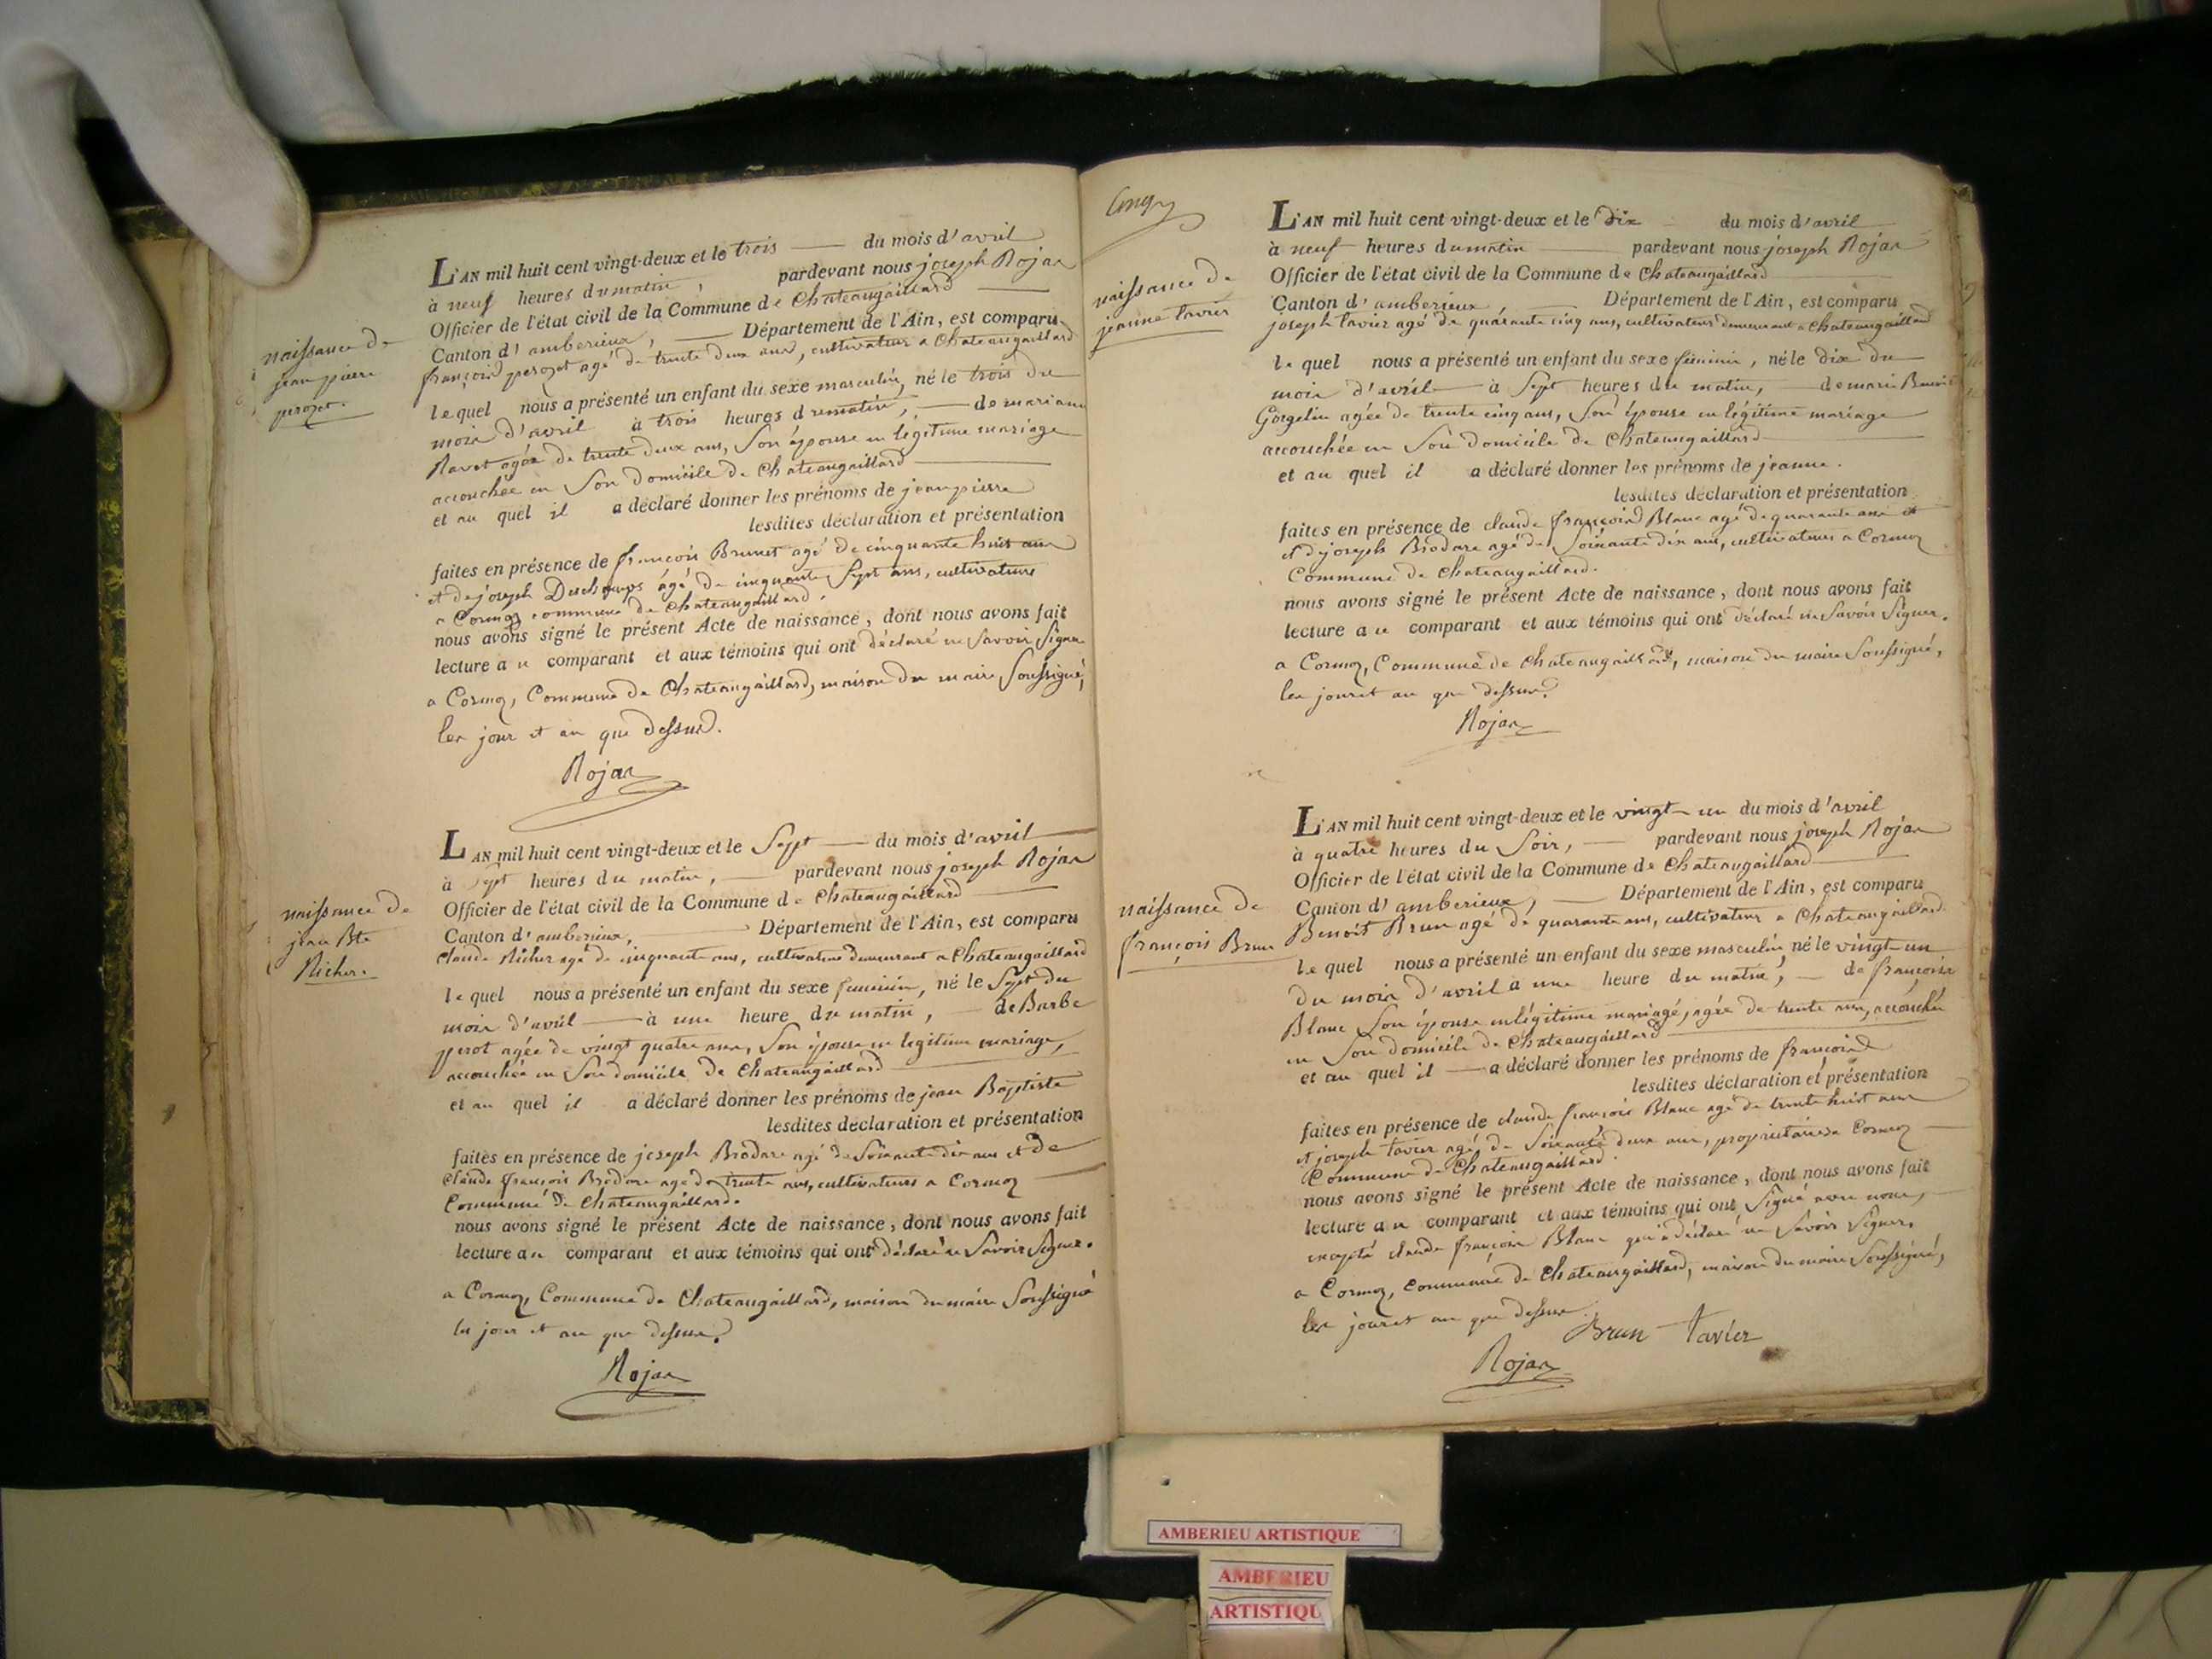 naissance de
jean pierre
perozet.
L'AN mil huit cent vingt-deux et le trois du mois d'avril
à neuf heures du matin, pardevant nous joseph Rojas
Officier de l'état civil de la Commune de Chateaugaillard
Canton d'amberieux, Département de l'Ain, est comparu
françois perozet agé de trente deux ans, cultivateur a Chateaugaillard
lequel nous a présenté un enfant du sexe masculin, né le trois du
mois d'avril à trois heures du matin, de mariane
Ravet agée de trente deux ans, Son épouse en légitime mariage
accouchée en Son domicile de Chateaugaillard
et au quel il a déclaré donner les prénoms de jean pierre
lesdites déclaration et présentation
faites en présence de françois Brunet agé de cinquante huit ans
et de joseph Deschamps âgé de cinquante Sept ans, cultivateurs
a Cormoz commune de Chateaugaillard.
nous avons signé le présent Acte de naissance, dont nous avons fait
lecture au comparant et aux témoins qui ont déclaré ne Savoir Signer
a Cormoz, Commune de Chateaugaillard, maison du maire Soussigné,
les jour et an que dessus.
Rojas
naissance de
jean Bte
Richer.
L'AN mil huit cent vingt-deux et le Sept du mois d'avril
à Sept heures du matin, pardevant nous joseph Rojas
Officier de l'état civil de la Commune de Chateaugaillard
Canton d'amberieux, Département de l'Ain, est comparu
Claude Richer agé de cinquante ans, cultivateur demeurant a Chateaugaillard
lequel nous a présenté un enfant du sexe feminin, né le Sept du
mois d'avril à une heure du matin, de Barbe
perot agée de vingt quatre ans, Son épouse en legitime mariage,
accouchée en Son domicile de Chateaugaillard
et au quel il a déclaré donner les prénoms de jean Baptiste
lesdites déclaration et présentation
faites en présence de joseph Brodare agé de Soixante dix ans et de
Claude françois Brodare agé de trente ans, cultivateurs a Cormoz
Commune de Chateaugaillard.
nous avons signé le présent Acte de naissance, dont nous avons fait
lecture au comparant et aux témoins qui ont déclaré ne Savoir Signer.
a Cormoz, Commune de Chateaugaillard, maison du maire Soussigné
les jour et an que dessus.
Rojas
Cinq
naissance de
jeanne tavier
L'AN mil huit cent vingt-deux et le dix du mois d'avril
à neuf heures du matin pardevant nous joseph Rojas
Officier de l'état civil de la Commune de Chateaugaillard
Canton d'amberieux, Département de l'Ain, est comparu
joseph tavier agé de quarante cinq ans, cultivateur demeurant a Chateaugaillard
lequel nous a présenté un enfant du sexe féminin, né le dix du
mois d'avril à Sept heures du matin, de marie
Gorgelin agée de trente cinq ans, Son épouse en légitime mariage
accouchée en Son domicile de Chateaugaillard
et au quel il a déclaré donner les prénoms de jeanne.
lesdites déclaration et présentation
faites en présence de claude françois Blanc agé de quarante ans et
et de joseph Brodare agé de Soixante dix ans, cultivateurs a Cormoz
Commune de Chateaugaillard.
nous avons signé le présent Acte de naissance, dont nous avons fait
lecture au comparant et aux témoins qui ont déclaré ne Savoir Signer.
a Cormoz, Commune de Chateaugaillard, maison du maire Soussigné,
les jour et an que dessus.
Rojas
naissance de
françois Brun
L'AN mil huit cent vingt-deux et le vingt un du mois d'avril
à quatre heures du Soir, pardevant nous joseph Rojas
Officier de l'état civil de la Commune de Chateaugaillard
Canton d'amberieux, Département de l'Ain, est comparu
Benoit Brun agé de quarante ans, cultivateur a Chateaugaillard
lequel nous a présenté un enfant du sexe masculin, né le vingt un
du mois d'avril a une heure du matin, de françoise
Blanc Son épouse en légitime mariage, agée de trente ans, accouchée
en Son domicile de Chateaugaillard
et au quel il a déclaré donner les prénoms de françois
lesdites déclaration et présentation
faites en présence de claude françois Blanc agé de trente huit ans
et joseph tavier agé de Soixante deux ans, proprietaires a Cormoz
Commune de Chateaugaillard.
nous avons signé le présent Acte de naissance, dont nous avons fait
lecture au comparant et aux témoins qui ont Signé avec nous,
excepté claude françois Blanc qui a déclaré ne Savoir Signer.
a Cormoz, commune de Chateaugaillard, maison du maire Soussigné,
les jour et an que dessus.
Brun tavier
Rojas
AMBERIEU ARTISTIQUE
AMBERIEU
ARTISTIQU